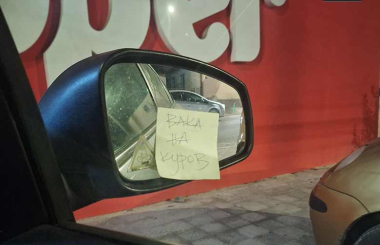 per
ВАКА
НА
КУРОВ